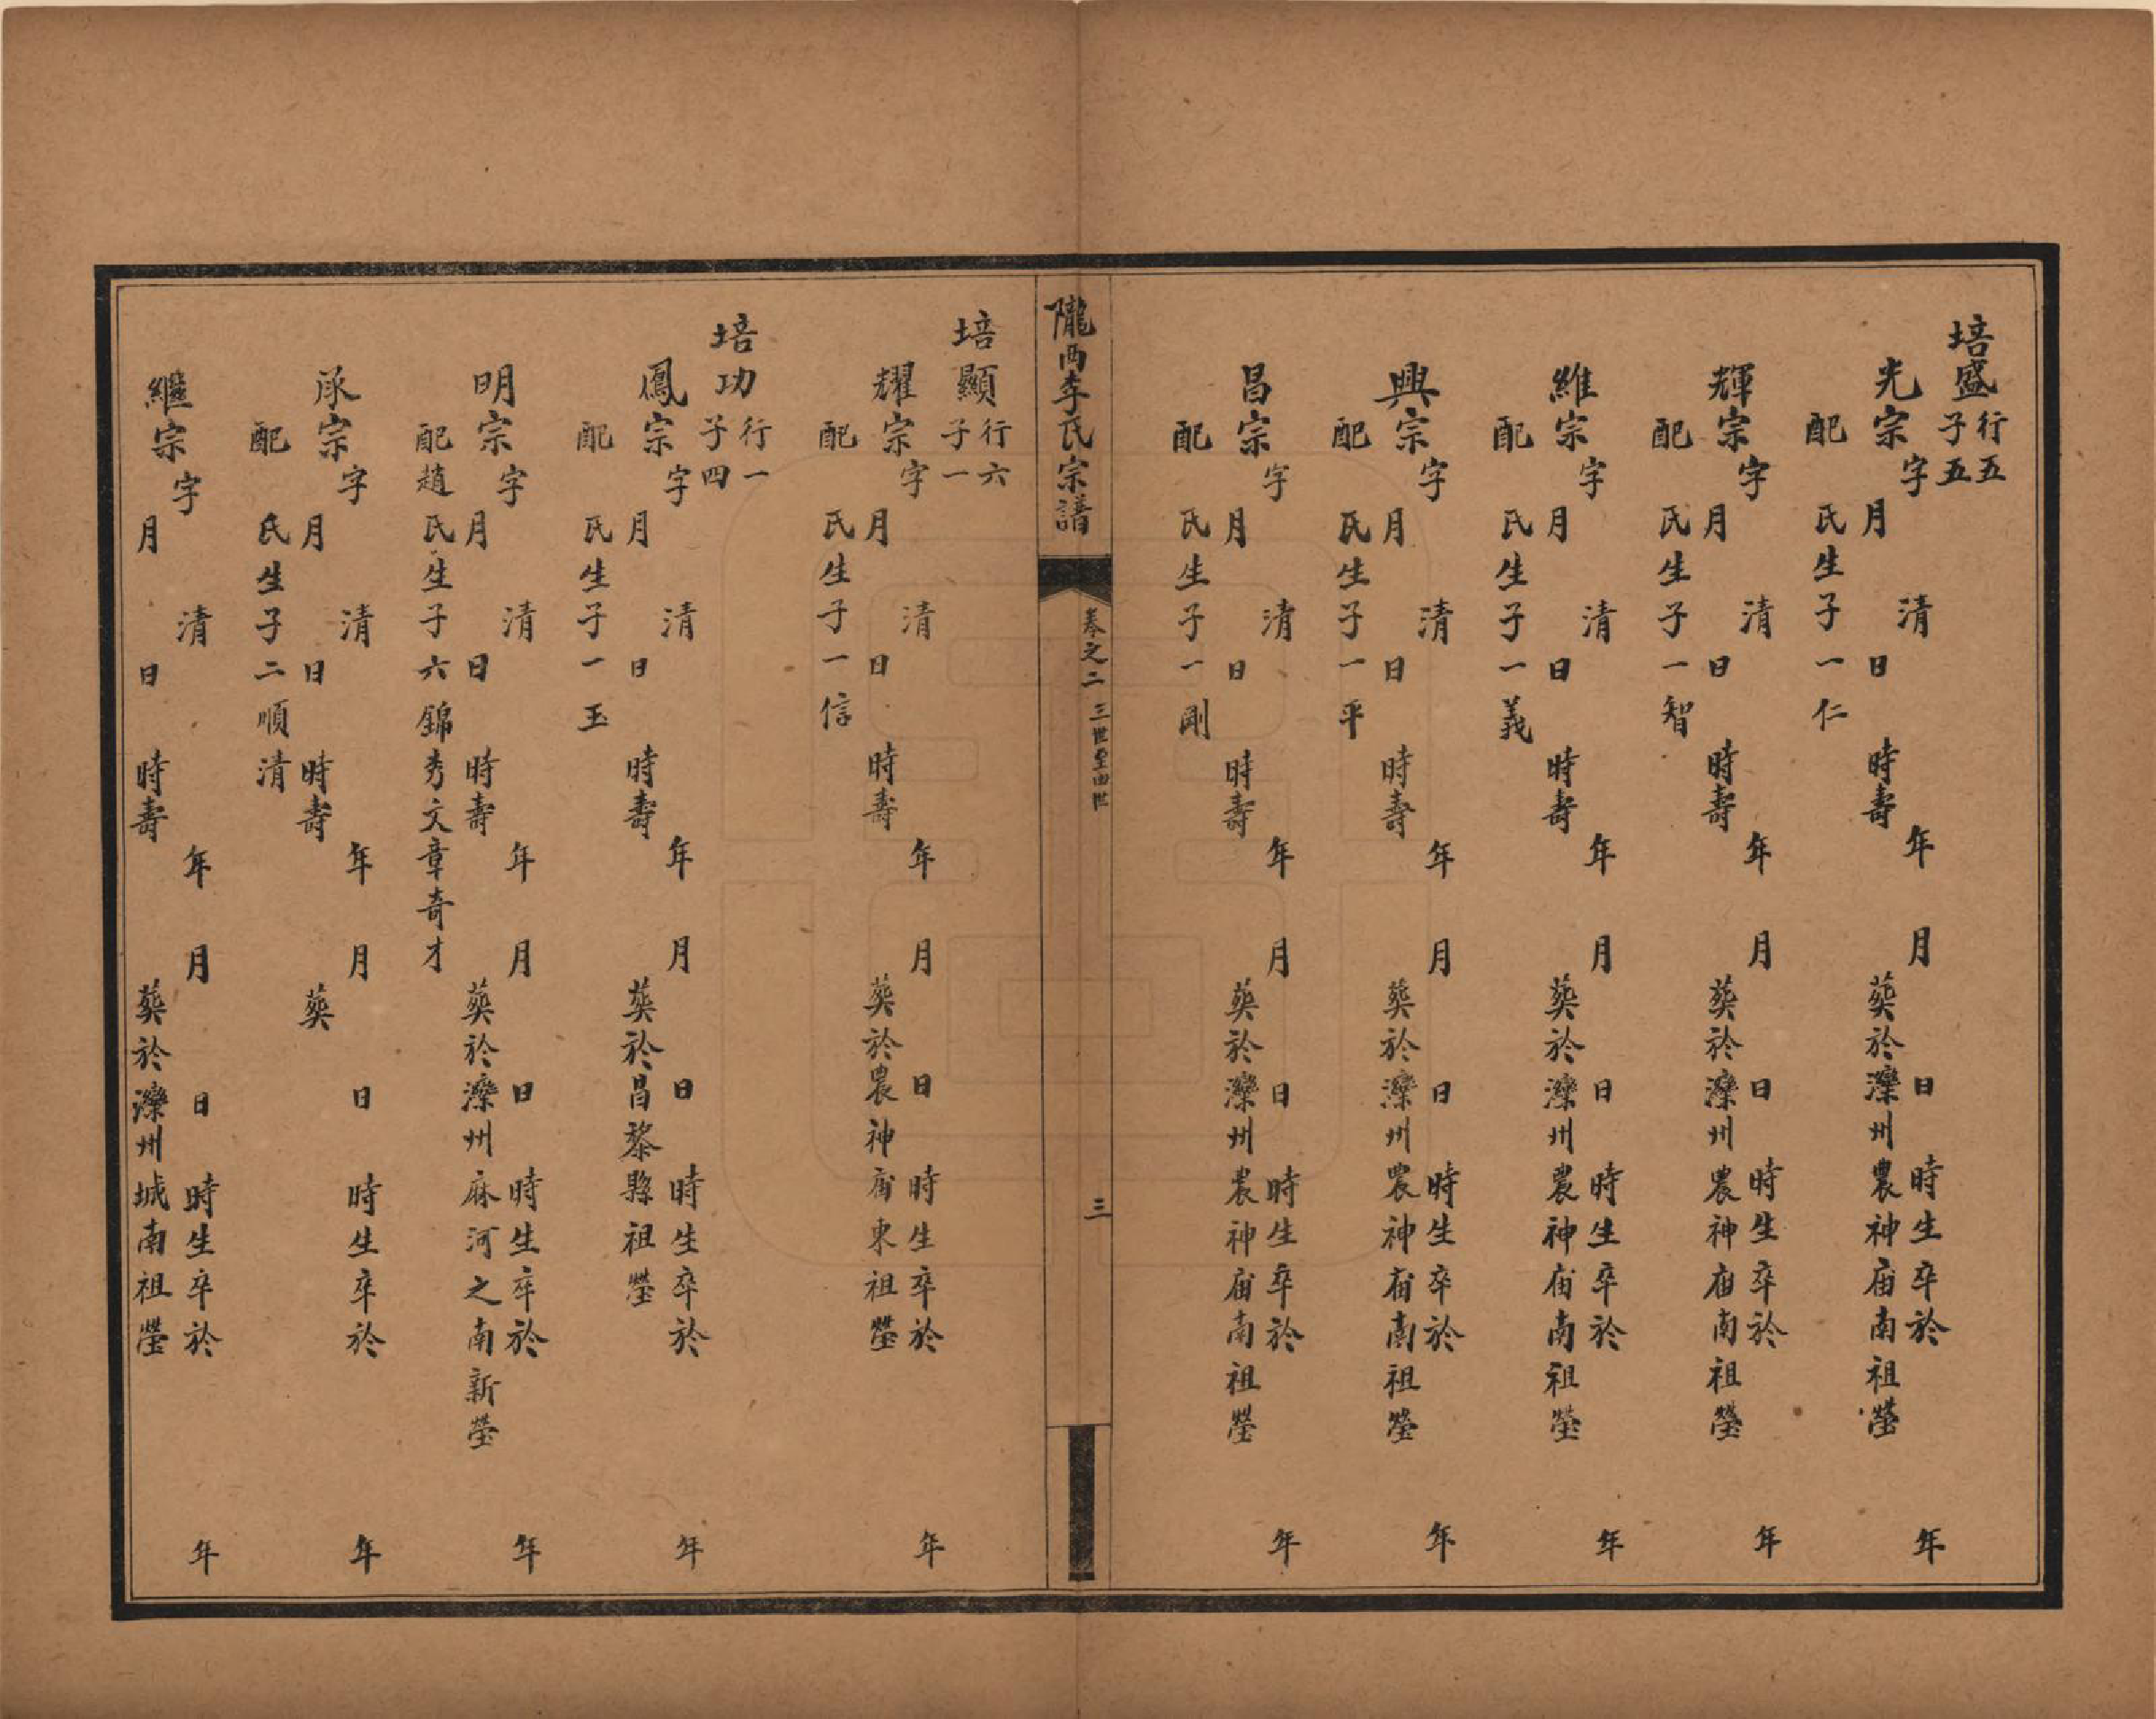 培盛行五
子五
光宗字 清 年 月 日 時生卒於 年
月 日 時壽 葬於灤州農神廟南祖塋
配 氏生子一仁
輝宗字 清 年 月 日 時生卒於 年
月 日 時壽 葬於灤州農神廟南祖塋
配 氏生子一智
維宗字 清 年 月 日 時生卒於 年
月 日 時壽 葬於灤州農神廟南祖塋
配 氏生子一義
興宗字 清 年 月 日 時生卒於 年
月 日 時壽 葬於灤州農神廟南祖塋
配 氏生子一平
昌宗字 清 年 月 日 時生卒於 年
月 日 時壽 葬於灤州農神廟南祖塋
配 氏生子一剛
隴西李氏宗譜 卷之二 三世至四世 三
培顯行六
子一
耀宗字 清 年 月 日 時生卒於 年
月 日 時壽 葬於農神廟東祖塋
配 氏生子一信
培功行一
子四
鳳宗字 清 年 月 日 時生卒於 年
月 日 時壽 葬於昌黎縣祖塋
配 氏生子一玉
明宗字 清 年 月 日 時生卒於 年
月 日 時壽 葬於灤州麻河之南新塋
配趙氏生子六錦秀文章奇才
承宗字 清 年 月 日 時生卒於 年
月 日 時壽 葬
配 氏生子二順清
繼宗字 清 年 月 日 時生卒於 年
月 日 時壽 葬於灤州城南祖塋